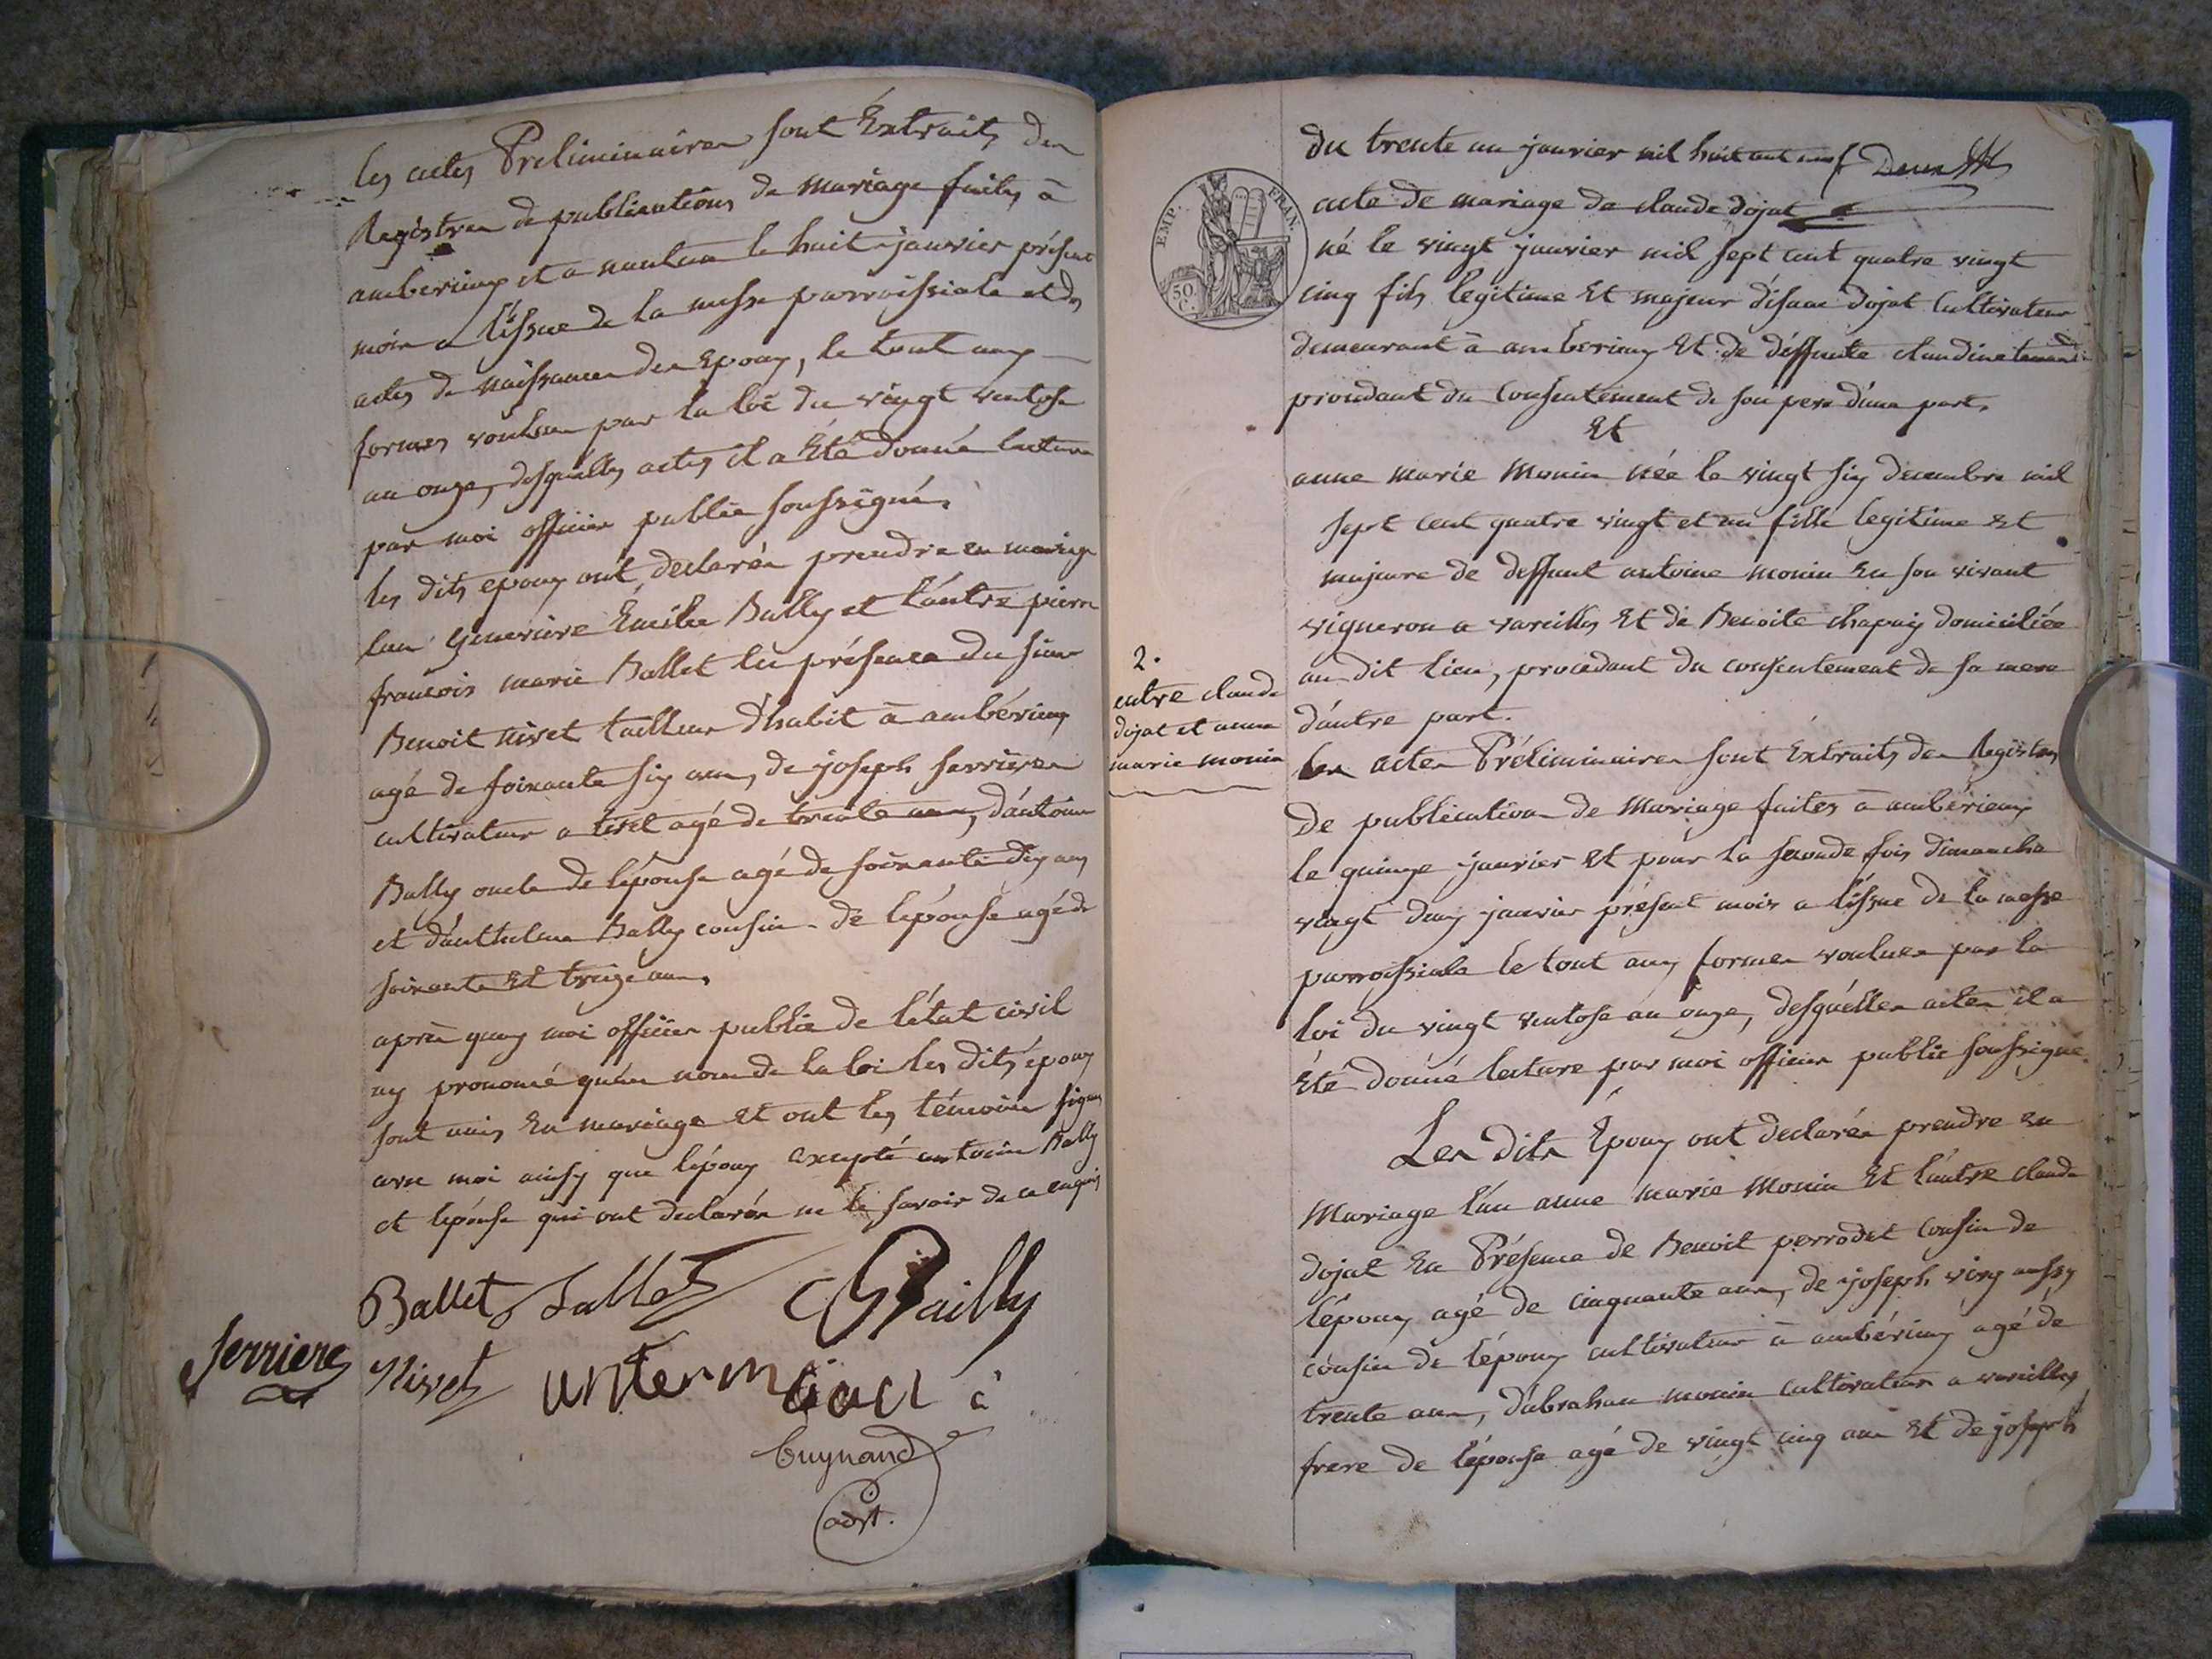 les actes Preliminaires sont Extraits des
Registres de publications de mariage faites à
amberieux et a nantua le huit janvier présent
mois a l'issue de la messe parroissiale et des
actes de naissances des Epoux, le tout aux
formes voulues par la loi du vingt ventose
an onze, desquelles actes il a Eté donné lecture
par moi officier public soussigné.
les dits epoux ont declarés prendre en mariage
l'un Genevieve Emilie Bally et l'autre pierre
francois marie Ballet En présence du sieur
Benoit nivet tailleur d'habit à ambérieux
agé de soixante six ans, de joseph serrieres
cultivateur a tiret agé de trente ans, d'antoine
Bally oncle de l'épouse agé de soixante dix ans
et d'anthelme Bally cousin de l'épouse agé de
soixante Et treize ans.
après quoy moi officier public de l'état civil
ay prononcé qu'au nom de la loi les dits époux
sont unis En mariage Et ont les témoins signés
avec moi ainsy que l'époux excepté antoine Bally
et l'épouse qui ont declarés ne le savoir de ce enquis
Ballet Ballet Bailly
serriere Nivet
Cuynand
adjt.
EMP. FRAN.
50 C.
Du trente un janvier mil huit cent neuf
acte de mariage de claude dojat
né le vingt janvier mil sept cent quatre vingt
cinq fils legitime Et majeur d'isaac dojat Cultivateur
demeurant à amberieux Et de deffunte claudine
procedant du Consentement de son pere d'une part.
Et
anne marie Monin née le vingt six decembre mil
sept cent quatre vingt et un fille legitime Et
majeure de deffunt antoine monin En son vivant
vigneron a vareilles Et de Benoite chapuis domiciliée
au dit lieu, procedant du consentement de sa mere
d'autre part.
2.
entre claude
dojat et anne
marie monin
Les actes Préliminaires sont Extraits des Registres
De publication de Mariage faites à ambérieux
le quinze janvier Et pour la seconde fois dimanche
vingt deux janvier présent mois a l'issue de la messe
parroissiale le tout aux formes voulues par la
loi du vingt ventose an onze, desquelles actes il a
Eté donné lecture par moi officier public soussigné.
Les dits Epoux ont declarés prendre en
Mariage l'un anne marie Monin Et l'autre claude
dojat En Présence de Benoit perrodet Cousin de
l'époux agé de cinquante ans, de joseph viry aussy
cousin de l'époux cultivateur à ambérieux agé de
trente ans, d'abraham monin cultivateur a vareilles
frere de l'épouse agé de vingt cinq ans Et de joseph